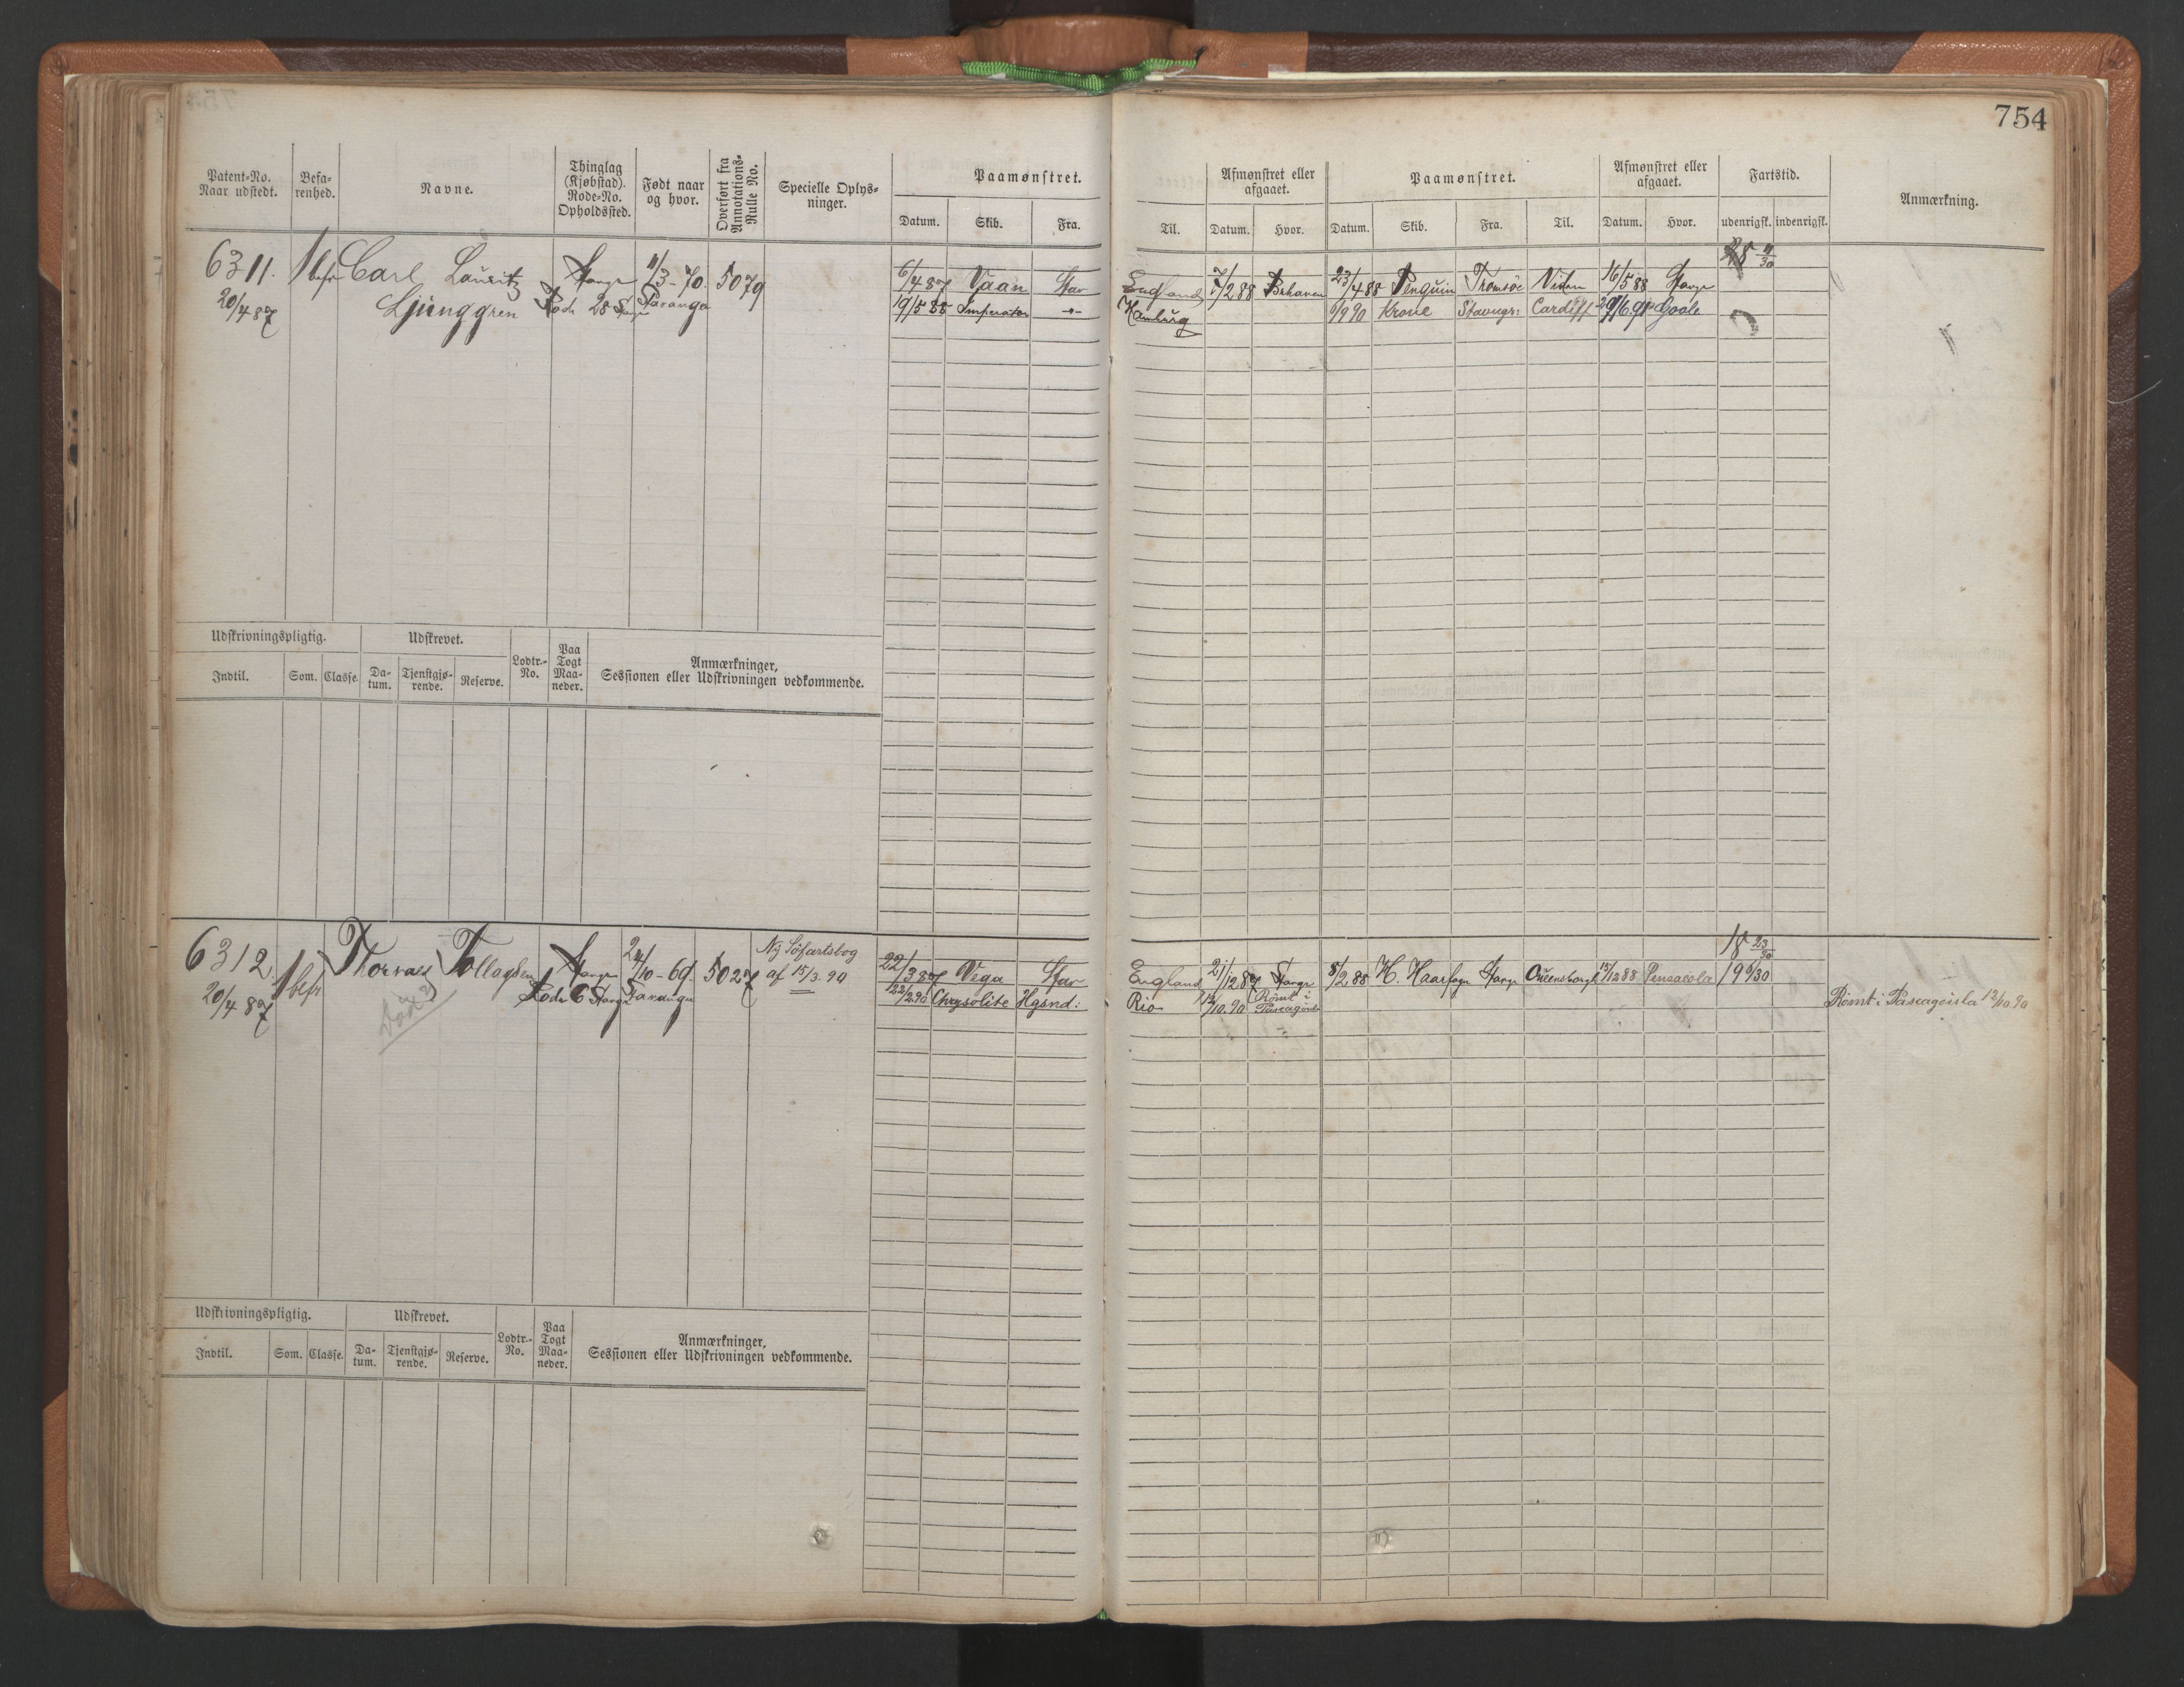 754
Patent-No. Naar udstedt.
Befa-renhed.
Navne.
Thinglag (Kjøbstad). Rode-No. Opholdssted.
Født naar og hvor.
Overført fra Annotations-Rulle No.
Specielle Oplys-ninger.
Paamønstret.
Datum. Skib. Fra.
Til.
Afmønstret eller afgaaet.
Datum. Hvor.
Paamønstret.
Datum. Skib. Fra. Til.
Afmønstret eller afgaaet.
Datum. Hvor.
Fartstid.
udenrigsk. indenrigsk.
Anmærkning.
6311. 1 befr Carl Lauritz Stangr 11/3-70. 5079
20/4 87 Ljunggren Rode 28 Stangr Stavanger
6/4 87 Vaan Stav England 7/2 88 Brhaven 23/4 88 Penguin Tromsöe 16/5 88 Stavgr
19/5 88 Imperator Hamburg 6/9 90 Krone Stavngr: Cardiff 29/6 91 Goole
11/30
Udskrivningspligtig. Udskrevet. Lodtr.-No. Paa Togt Maa-neder. Anmærkninger, Sessionen eller Udskrivningen vedkommende.
Indtil. Som. Classe. Da-tum. Tjenstgjø-rende. Reserve.
6312 1 befr Thorvald Tollagsen 24/10-69. 5027 Ny Søfartsbog
20/4 87 Rode 6 Stavanger af 15/3. 90
Død?
22/3 87 Vega Stav England 21/12 87 Stavgr 8/2 88 H. Haarfagr Stavgr 15/12 88 Pensacola 19 9/30
22/2 90 Chrysolite Hgsnd: Rio 12/10. 90 Römt i Pascagoula
18 23/30
Rømt i Pascagoula 12/10. 90
Udskrivningspligtig. Udskrevet. Lodtr.-No. Paa Togt Maa-neder. Anmærkninger, Sessionen eller Udskrivningen vedkommende.
Indtil. Som. Classe. Da-tum. Tjenstgjø-rende. Reserve.